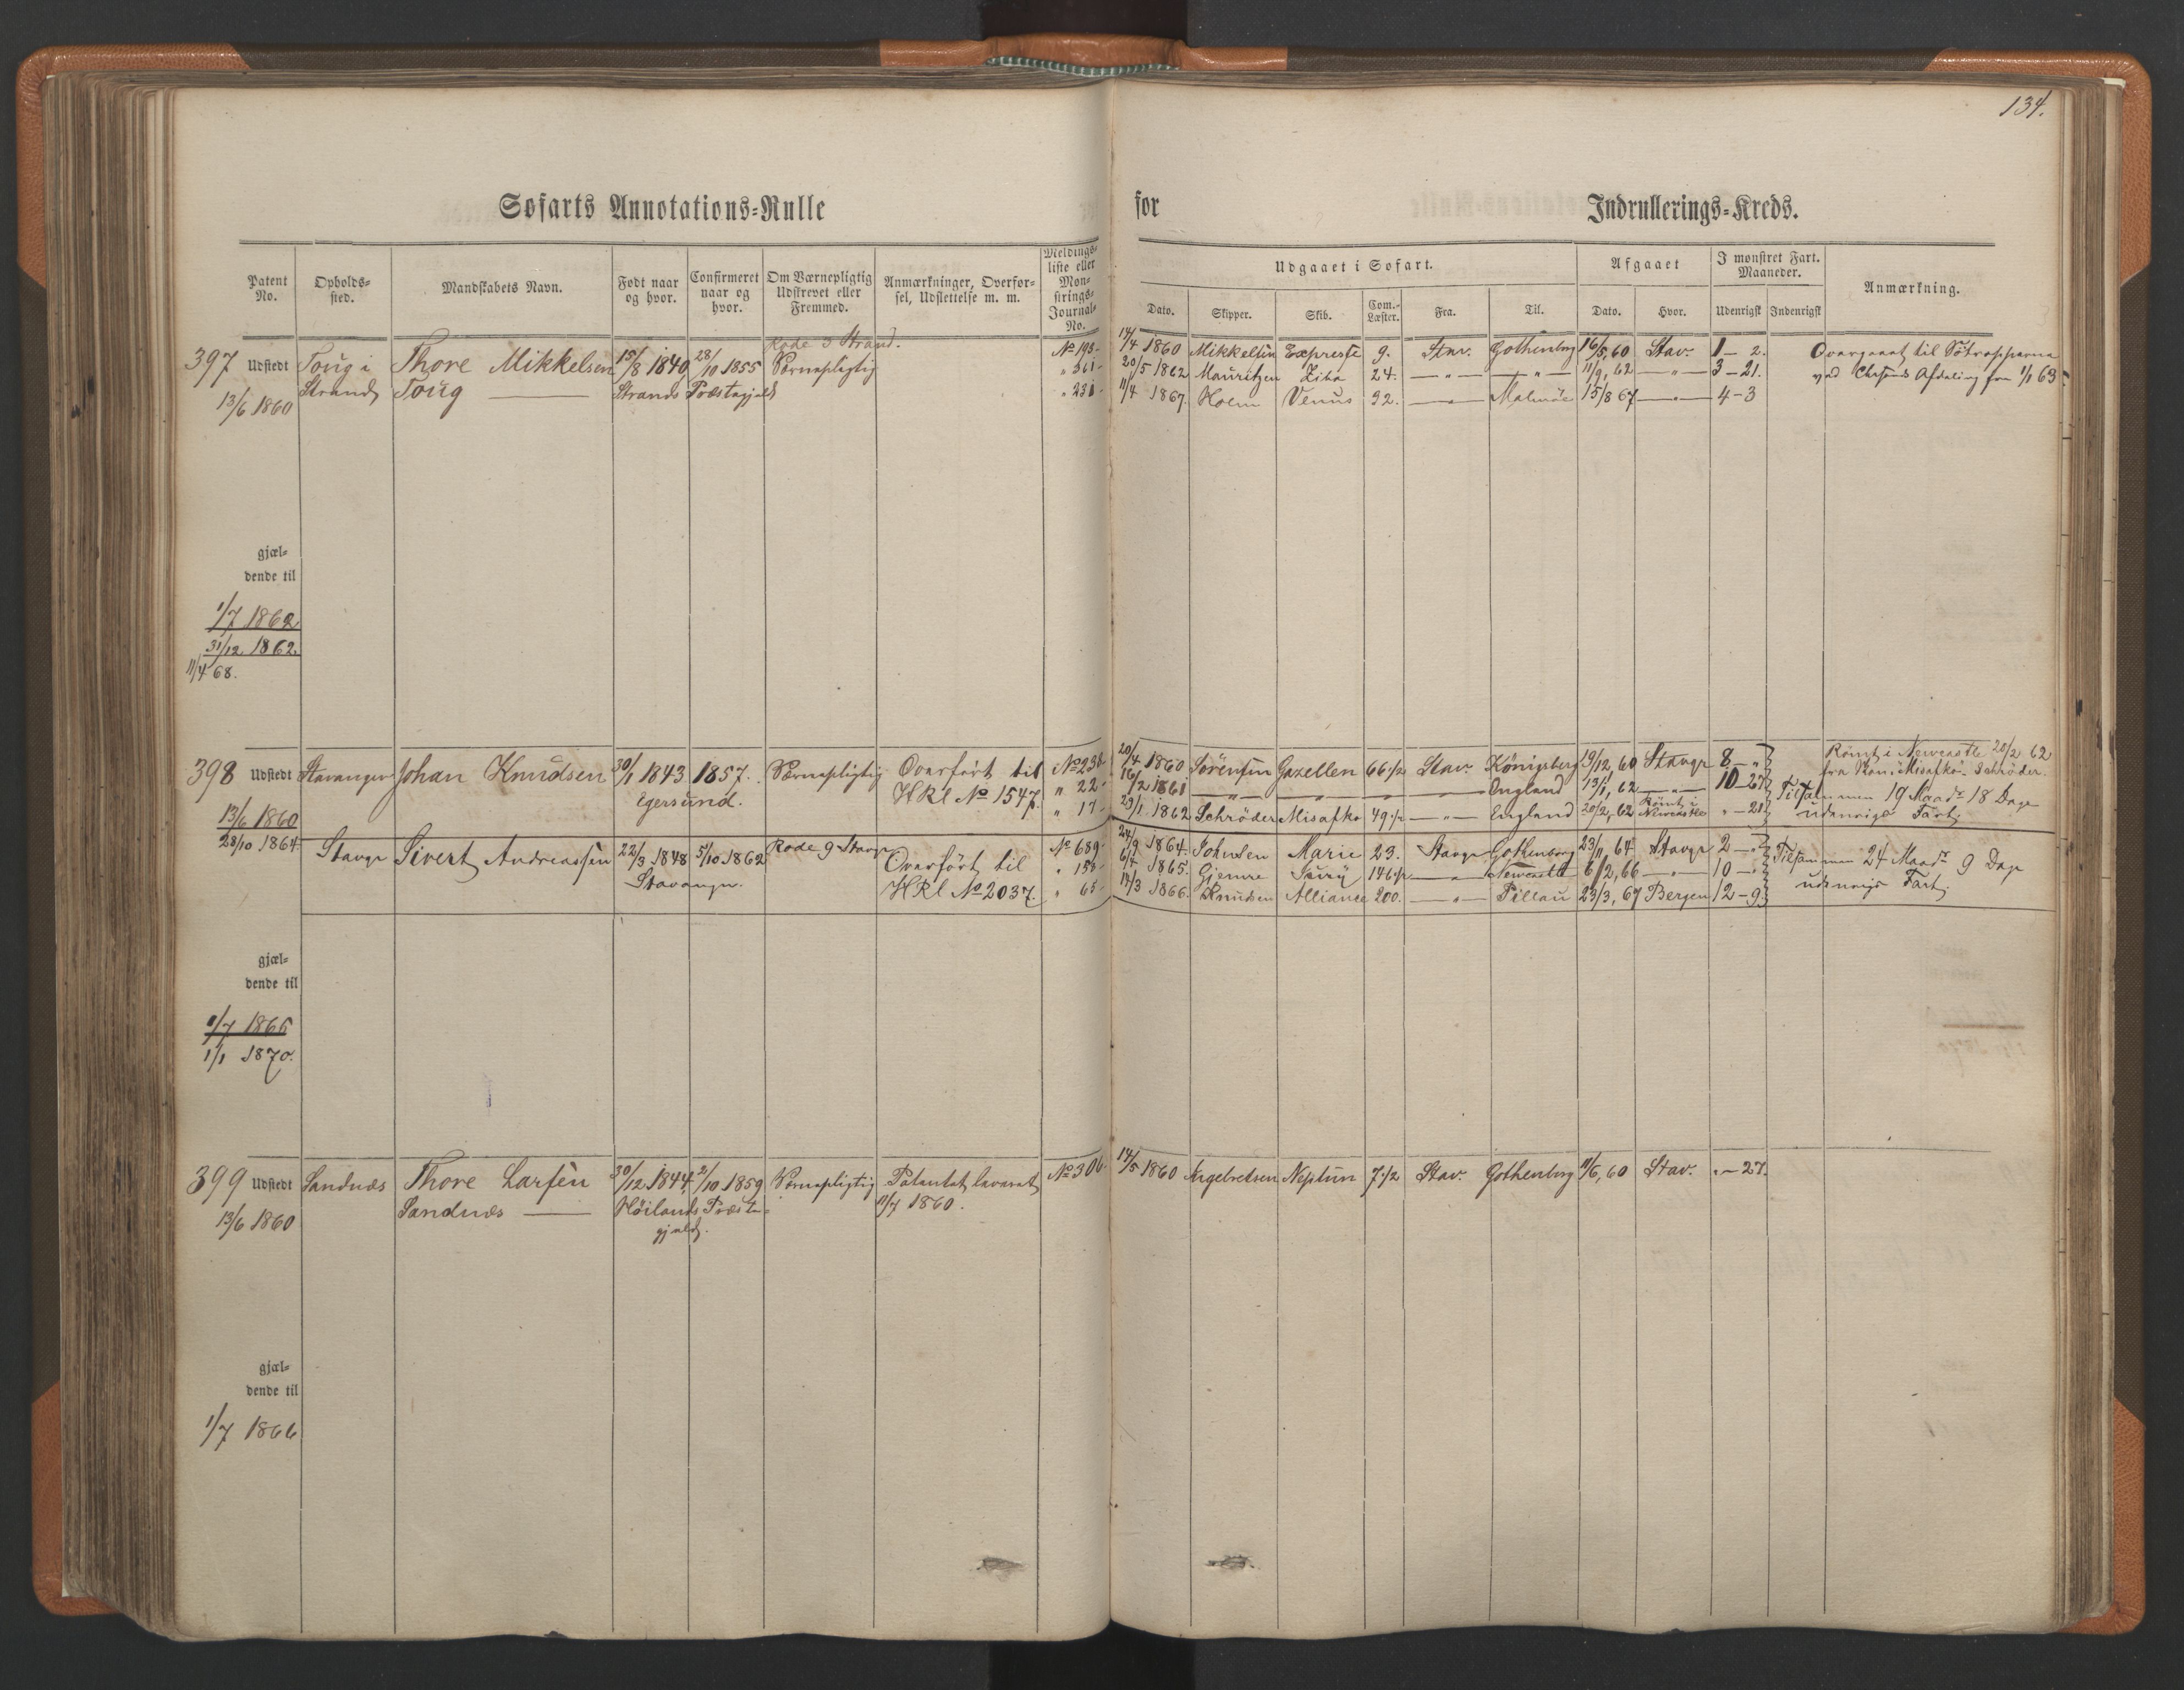 134.
Søfarts Annotations-Rulle for Indrullerings-Kreds.
Patent No. Opholds-sted. Mandskabets Navn. Født naar og hvor. Confirmeret naar og hvor. Om Værnepligtig Udskrevet eller Fremmed. Anmærkninger, Overførsel, Udslettelse m. m. Meldings-liste eller Mønstrings-Journal-No.
Udgaaet i Søfart. Afgaaet I mønstret Fart. Maaneder. Anmærkning.
Dato. Skipper. Skib. Com.-Læster. Fra. Til. Dato. Hvor. Udenrigsk Indenrigsk
Rode 3 Strand.
397 Udstedt Toug i Thore Mikkelsen 15/8 1840 28/10 1855 Værnepligtig No 193 - 14/4 1860 Mikkelsen Expresse 9. Stav. Gothenborg 16/5, 60 Stav. 1 - 2. Overgaaet til Søtropperne
Strand Toug — Strands Præstegjeld " 361 - 20/5 1862 Mauritzen Ziba 24. — " — — " — 11/9, 62 — " — 3 - 21. ved Chrsands Afdeling fra 1/1 63
13/6 1860 " 231 - 11/4 1867. Holm Venus 32. — " — Malmöe 15/8 67 — " — 4 - 3
gjæl-
dende til
1/7 1862
31/12 1862.
11/4 68.
398 Udstedt Stavanger Johan Knudsen 30/1 1843 1857. Værnepligtig Overført til No 236 20/4 1860 Sørensen Gazellen 66 1/2 Stav. Königsberg 19/12, 60 Stavgr 8 - " Rømt i Newcastle 20/2 62
Egersund. HRl No 1547. " 22 - 16/2 1861 — " — — " — — " — England 13/1, 62 — " — 10 - 27 fra Schröder.
13/6 1860 " 17 - 29/1 1862 Schröder 49 1/2 — " — England 20/2, 62 Rømt i Newcastle " - 21 Tilsammen 19 Maadr 18 Dage
udenrigs Fart,
28/10 1864. Stavgr Sivert Andreassen 22/3 1848 5/10 1862 Rode 9 Stavgr Overført til No 689 - 24/9 1864. Johnsen Marie 23. Stavgr Gothenborg 23/11, 64 Stavgr 2 - " Tilsammen 24 Maadr 9 Dage
Stavanger. HRl No 2037. " 158 - 6/4 1865. Gjemre 146 1/2 — " — Newcastle 6/2, 66 — " — 10 - " udenrigs Fart,
" 65 - 14/3 1866. Knudsen Alliance 200. — " — Pillau 23/3, 67 Bergen 12 - 9
gjæl-
dende til
1/7 1865
1/1 1870.
399 Udstedt Sandnæs Thore Larsen 30/12 1844, 2/10 1859 Værnepligtig Patentet leveret No 306 - 14/5 1860 Angebretsen Neptun 7 1/2 Stav. Gothenborg 11/6, 60 Stav. " - 27.
13/6 1860 Sandnæs — Höilands Præste- 11/7 1860.
gjeld.
gjæl-
dende til
1/7 1866